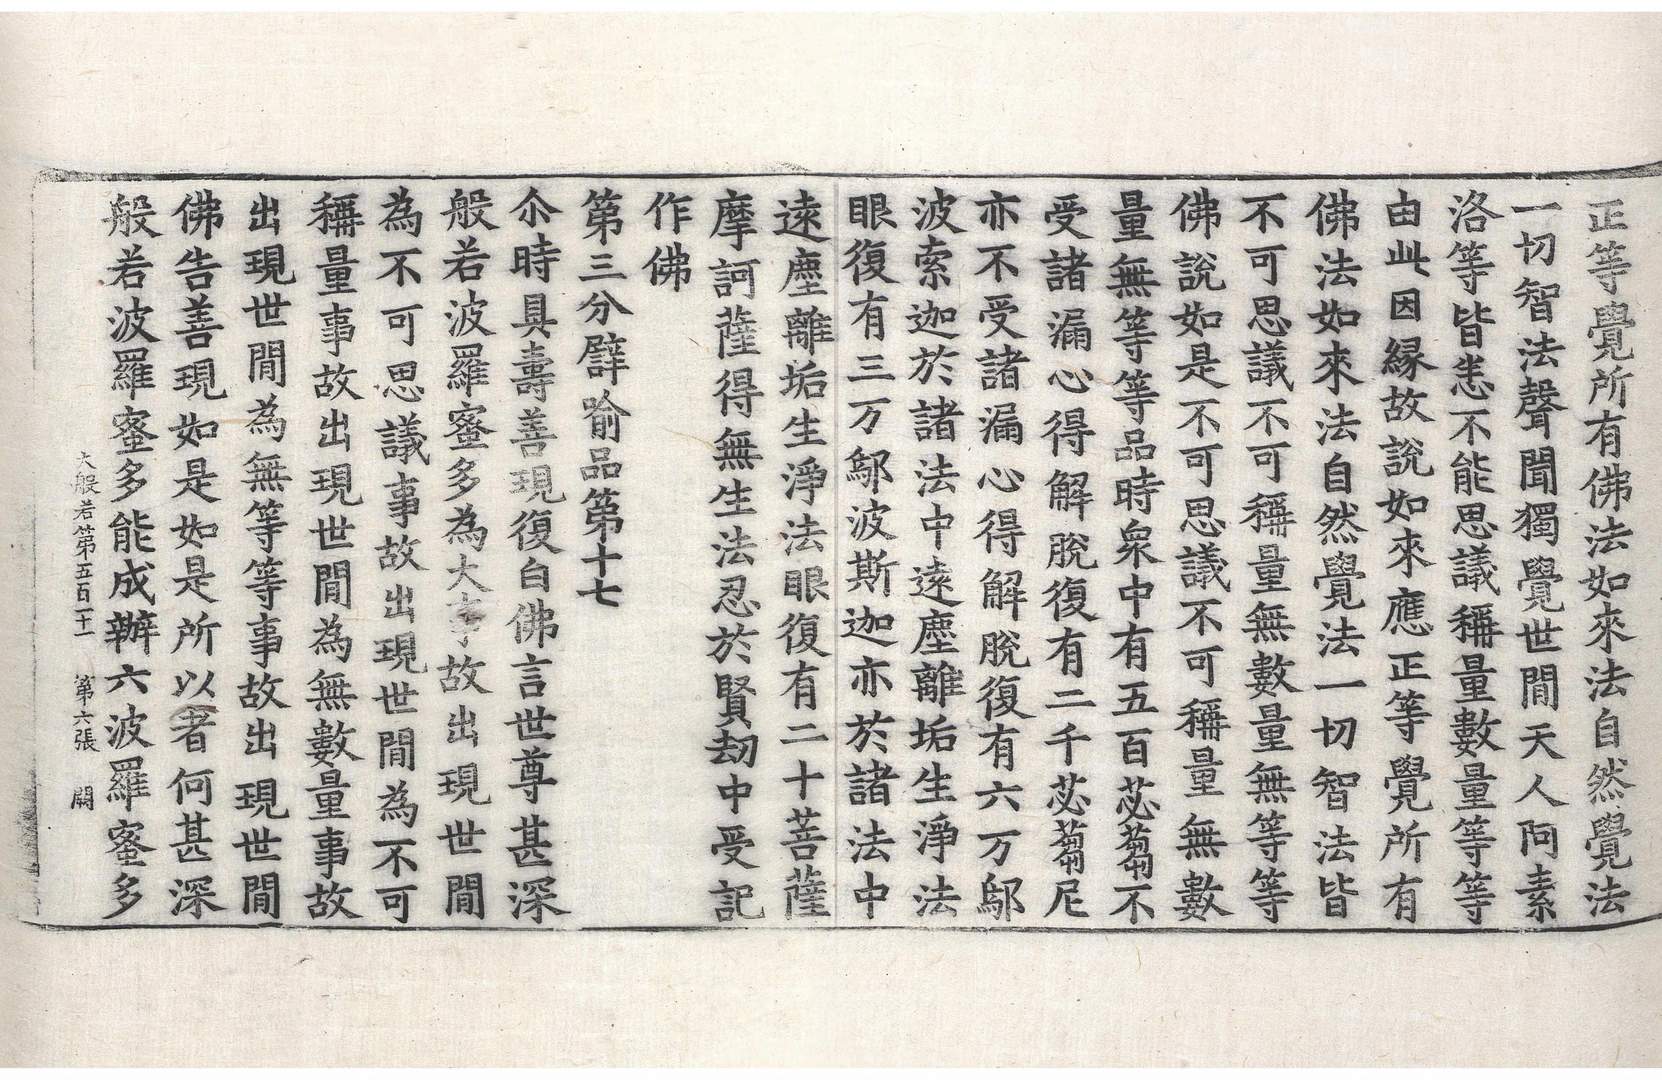 正等覺所有佛法如來法自然覺法
一切智法聲聞獨覺世間天人阿素
洛等皆悉不能思議稱量數量等等
由此因緣故說如來應正等覺所有
佛法如來法自然覺法一切智法皆
不可思議不可稱量無數量無等等
佛說如是不可思議不可稱量無數
量無等等品時衆中有五百苾蒭不
受諸漏心得解脫復有二千苾蒭尼
亦不受諸漏心得解脫復有六万鄔
波索迦於諸法中遠塵離垢生淨法
眼復有三万鄔波斯迦亦於諸法中
遠塵離垢生淨法眼復有二十菩薩
摩訶薩得無生法忍於賢劫中受記
作佛
第三分譬喻品第十七
尒時具壽善現復白佛言世尊甚深
般若波羅蜜多為大事故出現世間
為不可思議事故出現世間為不可
稱量事故出現世間為無數量事故
出現世間為無等等事故出現世間
佛告善現如是如是所以者何甚深
般若波羅蜜多能成辦六波羅蜜多
大般若第五百二十一 第六張 闕